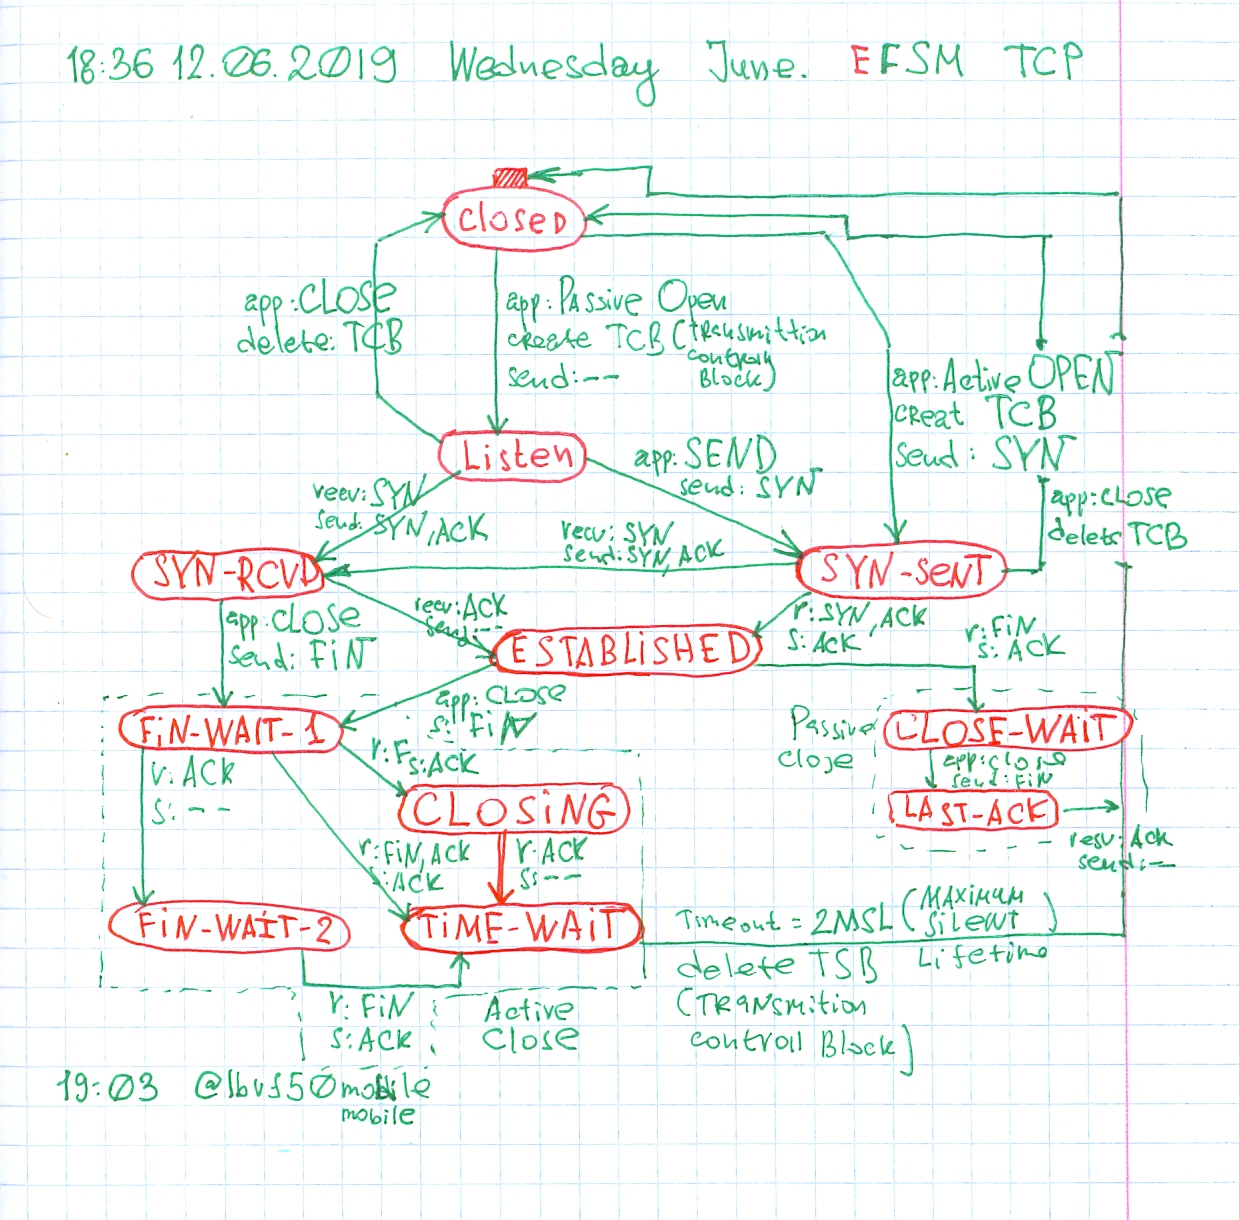 18:36 12.06.2019 Wednesday June. EFSM TCP
closed
app:CLOSE
delete:TCB
app:Passive Open
create TCB (Transmittion
controll
Block)
send:--
app:Active OPEN
creat TCB
send: SYN
Listen
app:SEND
send: SYN
recv:SYN
send:SYN,ACK
recv:SYN
send:SYN,ACK
app:CLOSE
delete TCB
SYN-RCVD
SYN-SENT
recv:ACK
send:--
r:SYN,ACK
s:ACK
app:CLOSE
send:FiN
ESTABLiSHED
r:FiN
s:ACK
app:CLOSE
s:FiN
FiN-WAIT-1
Passive
close
CLOSE-WAiT
r:F
s:ACK
r:ACK
s:--
app:close
send:FiN
CLOSiNG
LAST-ACK
r:FiN,ACK
s:ACK
r:ACK
s:--
resv:Ack
send:--
FiN-WAIT-2
TiME-WAiT
Timeout = 2MSL (MAXIMUM
Silent
Lifetime)
delete TSB
(TRANSmition
controll Block)
r:FiN
s:ACK
Active
Close
19:03 @lbvs50mobile
mobile